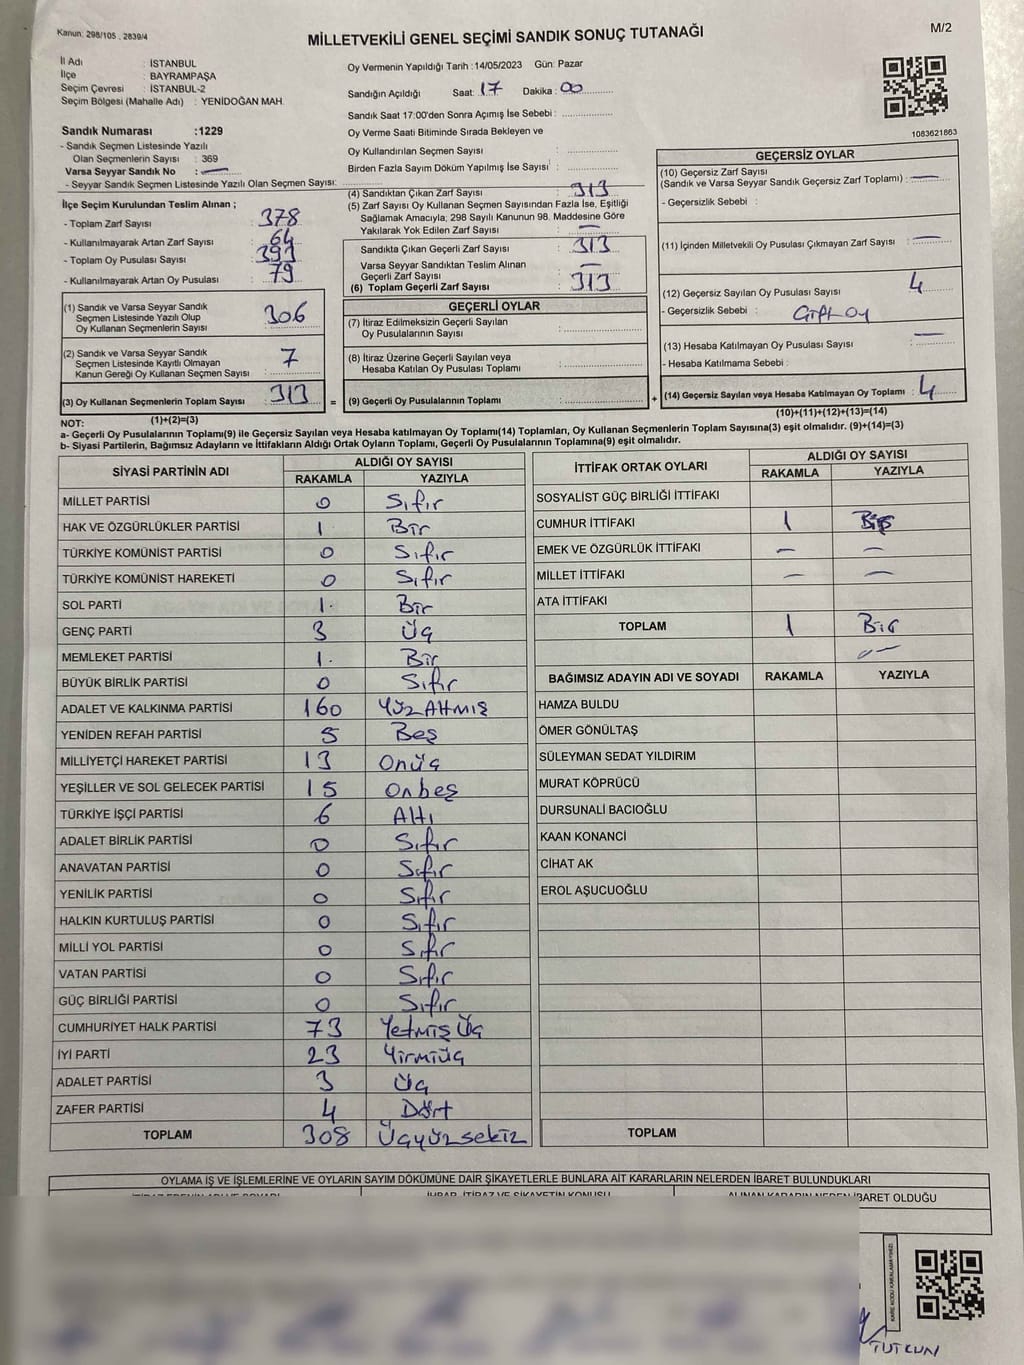 Kanun: 298/105 , 2839/4
M/2
MİLLETVEKİLİ GENEL SEÇİMİ SANDIK SONUÇ TUTANAĞI
İl Adı : İSTANBUL
İlçe : BAYRAMPAŞA
Seçim Çevresi : İSTANBUL-2
Seçim Bölgesi (Mahalle Adı) : YENİDOĞAN MAH.
Sandık Numarası :1229
- Sandık Seçmen Listesinde Yazılı
Olan Seçmenlerin Sayısı : 369
Varsa Seyyar Sandık No : —
- Seyyar Sandık Seçmen Listesinde Yazılı Olan Seçmen Sayısı:
İlçe Seçim Kurulundan Teslim Alınan ;
- Toplam Zarf Sayısı : 378
- Kullanılmayarak Artan Zarf Sayısı : 64
- Toplam Oy Pusulası Sayısı : 393
- Kullanılmayarak Artan Oy Pusulası : 79
(1) Sandık ve Varsa Seyyar Sandık
Seçmen Listesinde Yazılı Olup
Oy Kullanan Seçmenlerin Sayısı : 306
(2) Sandık ve Varsa Seyyar Sandık
Seçmen Listesinde Kayıtlı Olmayan
Kanun Gereği Oy Kullanan Seçmen Sayısı : 7
(3) Oy Kullanan Seçmenlerin Toplam Sayısı : 313
(1)+(2)=(3)
Oy Vermenin Yapıldığı Tarih :14/05/2023 Gün: Pazar
Sandığın Açıldığı Saat: 17 Dakika : 00
Sandık Saat 17:00'den Sonra Açımış İse Sebebi :
Oy Verme Saati Bitiminde Sırada Bekleyen ve
Oy Kullandırılan Seçmen Sayısı :
Birden Fazla Sayım Döküm Yapılmış İse Sayısı :
(4) Sandıktan Çıkan Zarf Sayısı : 313
(5) Zarf Sayısı Oy Kullanan Seçmen Sayısından Fazla İse, Eşitliği
Sağlamak Amacıyla; 298 Sayılı Kanunun 98. Maddesine Göre
Yakılarak Yok Edilen Zarf Sayısı : —
Sandıkta Çıkan Geçerli Zarf Sayısı : 313
Varsa Seyyar Sandıktan Teslim Alınan
Geçerli Zarf Sayısı : —
(6) Toplam Geçerli Zarf Sayısı : 313
GEÇERLİ OYLAR
(7) İtiraz Edilmeksizin Geçerli Sayılan
Oy Pusulalarının Sayısı :
(8) İtiraz Üzerine Geçerli Sayılan veya
Hesaba Katılan Oy Pusulası Toplamı :
= (9) Geçerli Oy Pusulalarının Toplamı :
1083621863
GEÇERSİZ OYLAR
(10) Geçersiz Zarf Sayısı
(Sandık ve Varsa Seyyar Sandık Geçersiz Zarf Toplamı) : —
- Geçersizlik Sebebi :
(11) İçinden Milletvekili Oy Pusulası Çıkmayan Zarf Sayısı : —
(12) Geçersiz Sayılan Oy Pusulası Sayısı : 4
- Geçersizlik Sebebi : Çift Oy
(13) Hesaba Katılmayan Oy Pusulası Sayısı : —
- Hesaba Katılmama Sebebi :
+ (14) Geçersiz Sayılan veya Hesaba Katılmayan Oy Toplamı : 4
(10)+(11)+(12)+(13)=(14)
NOT:
a- Geçerli Oy Pusulalarının Toplamı(9) ile Geçersiz Sayılan veya Hesaba katılmayan Oy Toplamı(14) Toplamları, Oy Kullanan Seçmenlerin Toplam Sayısına(3) eşit olmalıdır. (9)+(14)=(3)
b- Siyasi Partilerin, Bağımsız Adayların ve İttifakların Aldığı Ortak Oyların Toplamı, Geçerli Oy Pusulalarının Toplamına(9) eşit olmalıdır.
SİYASİ PARTİNİN ADI ALDIĞI OY SAYISI
RAKAMLA YAZIYLA
MİLLET PARTİSİ 0 Sıfır
HAK VE ÖZGÜRLÜKLER PARTİSİ 1 Bir
TÜRKİYE KOMÜNİST PARTİSİ 0 Sıfır
TÜRKİYE KOMÜNİST HAREKETİ 0 Sıfır
SOL PARTİ 1 Bir
GENÇ PARTİ 3 Üç
MEMLEKET PARTİSİ 1 Bir
BÜYÜK BİRLİK PARTİSİ 0 Sıfır
ADALET VE KALKINMA PARTİSİ 160 YüzAltmış
YENİDEN REFAH PARTİSİ 5 Beş
MİLLİYETÇİ HAREKET PARTİSİ 13 Onüç
YEŞİLLER VE SOL GELECEK PARTİSİ 15 Onbeş
TÜRKİYE İŞÇİ PARTİSİ 6 Altı
ADALET BİRLİK PARTİSİ 0 Sıfır
ANAVATAN PARTİSİ 0 Sıfır
YENİLİK PARTİSİ 0 Sıfır
HALKIN KURTULUŞ PARTİSİ 0 Sıfır
MİLLİ YOL PARTİSİ 0 Sıfır
VATAN PARTİSİ 0 Sıfır
GÜÇ BİRLİĞİ PARTİSİ 0 Sıfır
CUMHURİYET HALK PARTİSİ 73 Yetmiş Üç
İYİ PARTİ 23 Yirmiüç
ADALET PARTİSİ 3 Üç
ZAFER PARTİSİ 4 Dört
TOPLAM 308 Üçyüzsekiz
İTTİFAK ORTAK OYLARI ALDIĞI OY SAYISI
RAKAMLA YAZIYLA
SOSYALİST GÜÇ BİRLİĞİ İTTİFAKI
CUMHUR İTTİFAKI 1 Bir
EMEK VE ÖZGÜRLÜK İTTİFAKI — —
MİLLET İTTİFAKI — —
ATA İTTİFAKI
TOPLAM 1 Bir
BAĞIMSIZ ADAYIN ADI VE SOYADI RAKAMLA YAZIYLA
HAMZA BULDU
ÖMER GÖNÜLTAŞ
SÜLEYMAN SEDAT YILDIRIM
MURAT KÖPRÜCÜ
DURSUNALİ BACIOĞLU
KAAN KONANCİ
CİHAT AK
EROL AŞUCUOĞLU
TOPLAM
OYLAMA İŞ VE İŞLEMLERİNE VE OYLARIN SAYIM DÖKÜMÜNE DAİR ŞİKAYETLERLE BUNLARA AİT KARARLARIN NELERDEN İBARET BULUNDUKLARI
İHBAR, İTİRAZ VE ŞİKAYETİN KONUSU ALINAN KARARIN NEDEN İBARET OLDUĞU
KARE KODU KARALAMAYINIZ!
TUTKUN